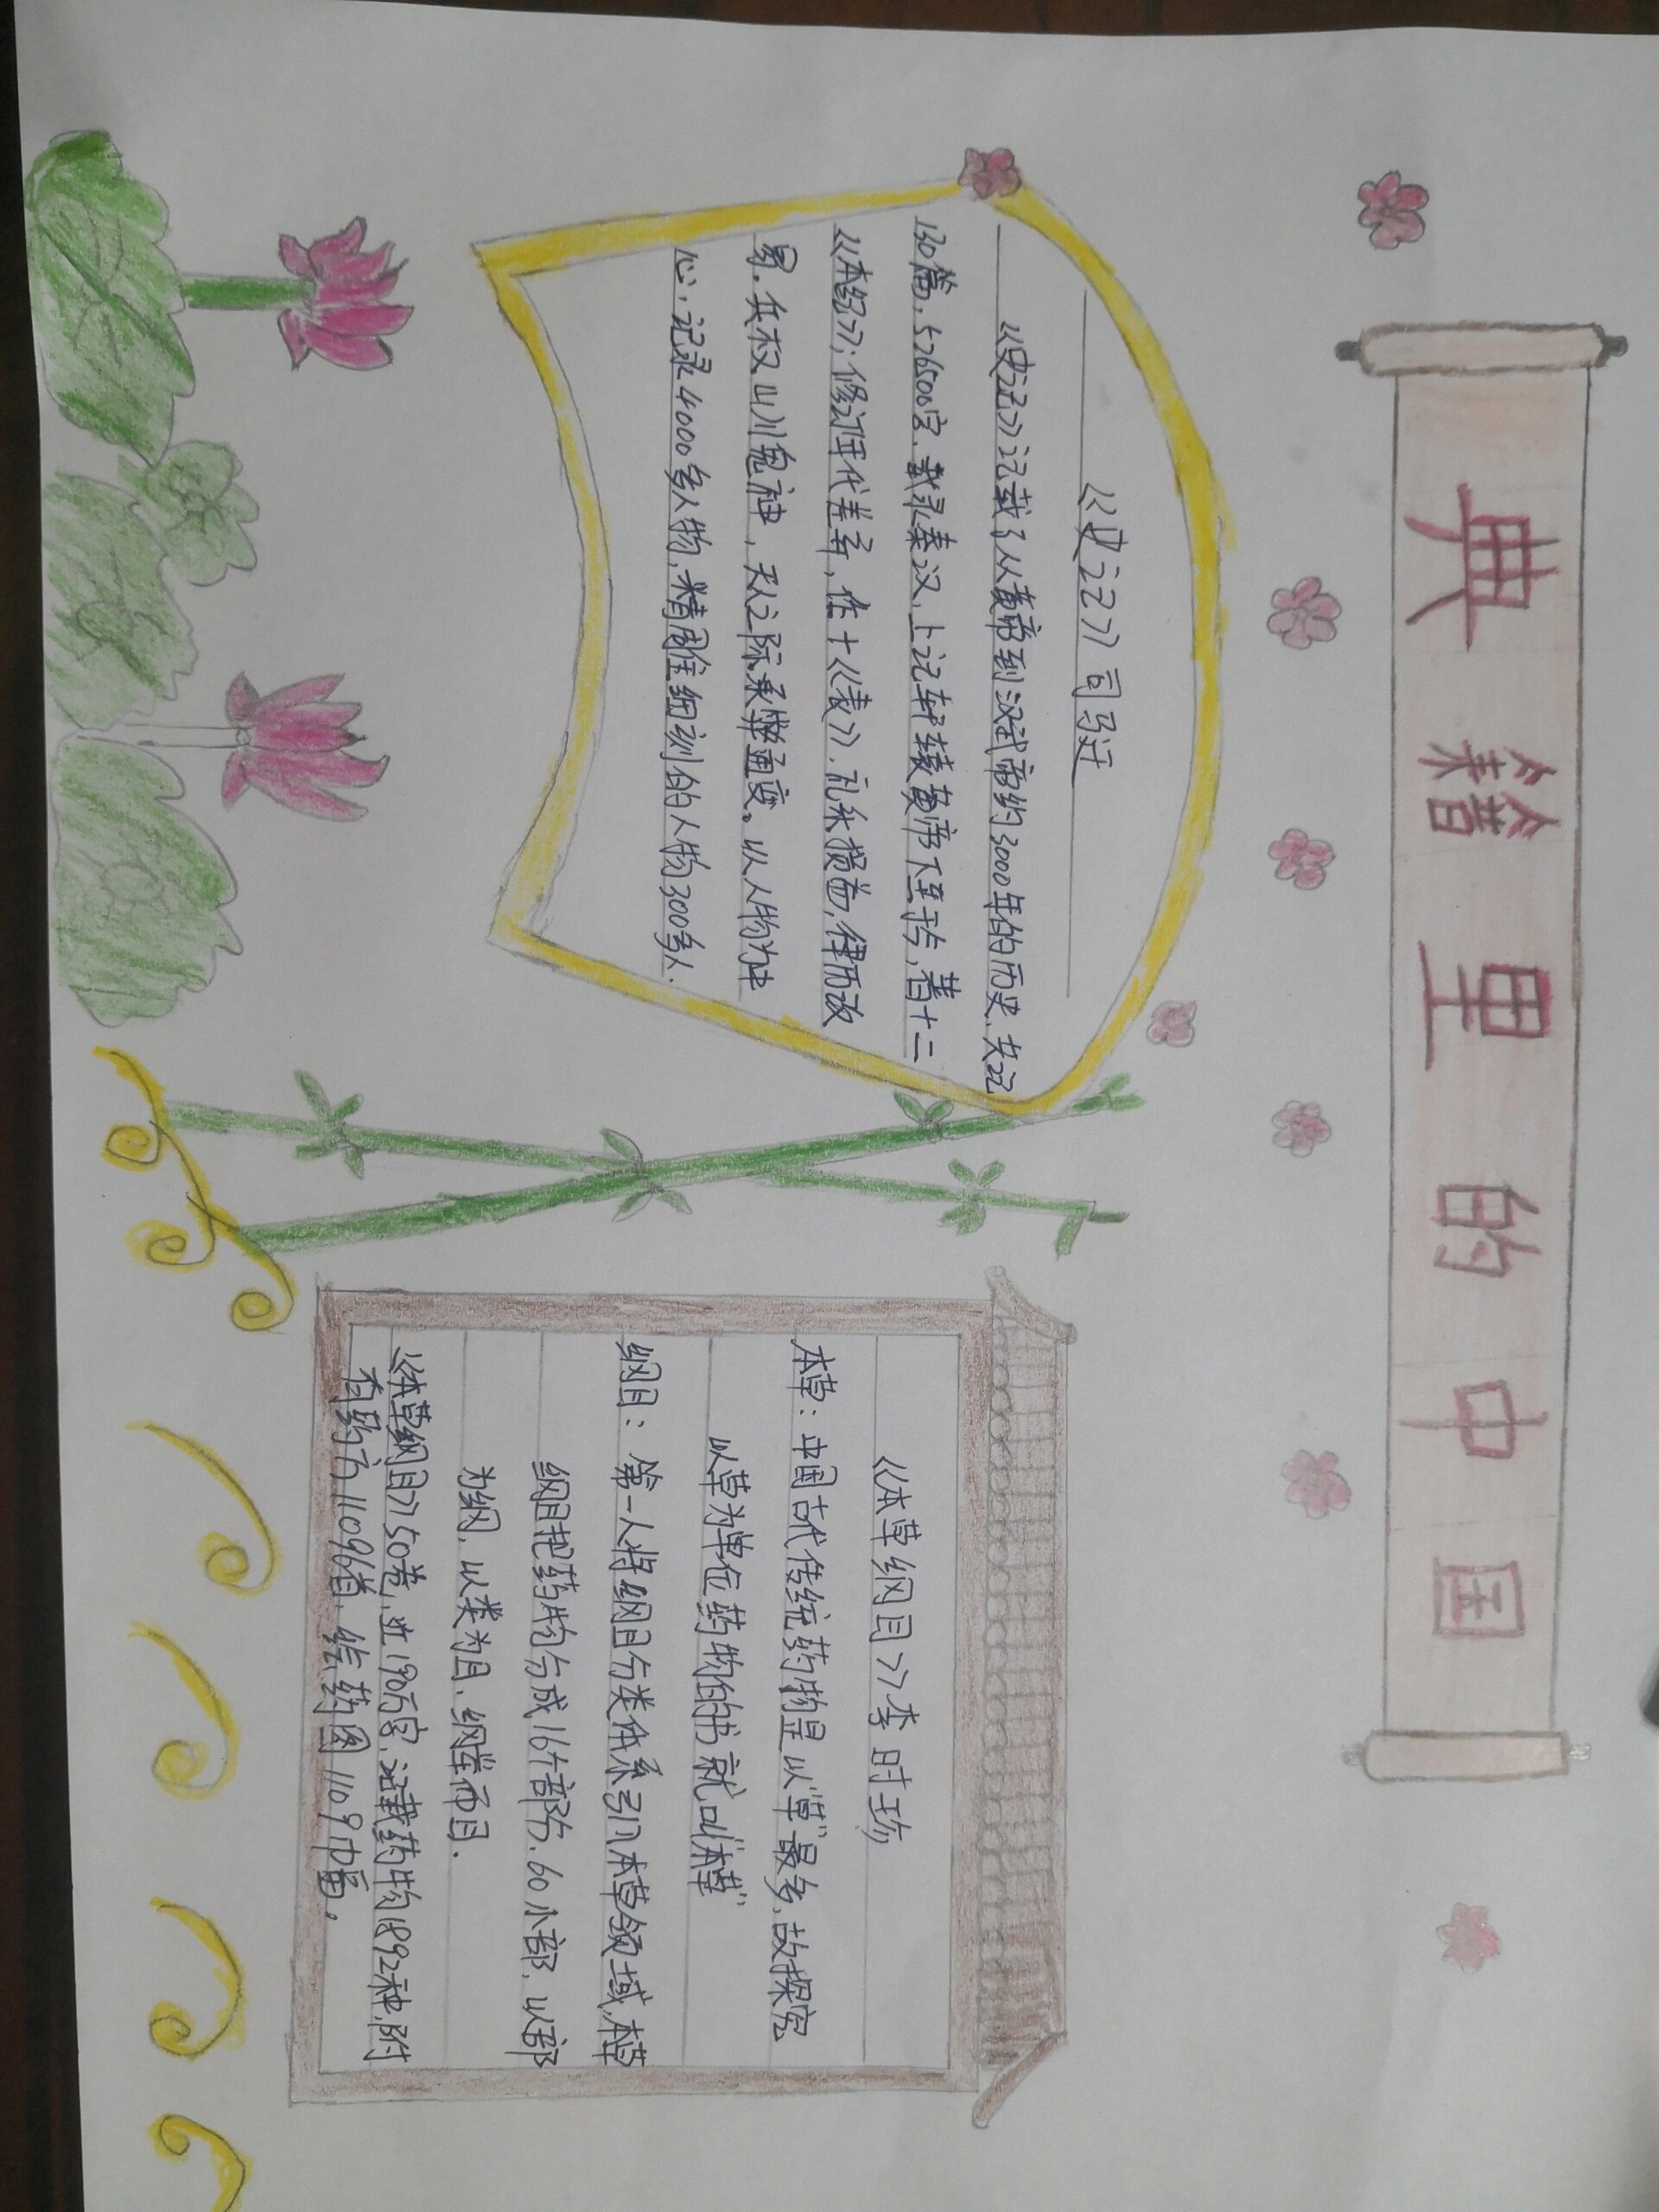 典籍里的中国
《史记》司马迁
《史记》记载了从黄帝到汉武帝约3000年的历史,共记
130篇,526500字,载录秦汉,上记轩辕黄帝下至于今,著十二
《本纪》;修订年代差异,作十《表》,礼乐损益,律历改
易,兵权山川鬼神,天人之际承弊通变。以人物为中
心,记录4000多人物,精周佳细训的人物300多人.
《本草纲目》李时珍
本草:中国古代传统药物是以"草"最多,故探究
以草为单位药物的书就叫"本草"
纲目:第一人将纲目分类体系引入本草领域,本草
纲目把药物分成16个部分,60小部,以部
为纲,以类为目,纲举而目.
《本草纲目》50卷,近190万字,记载药物1892种,附
有药方11096首,绘药图1109幅。